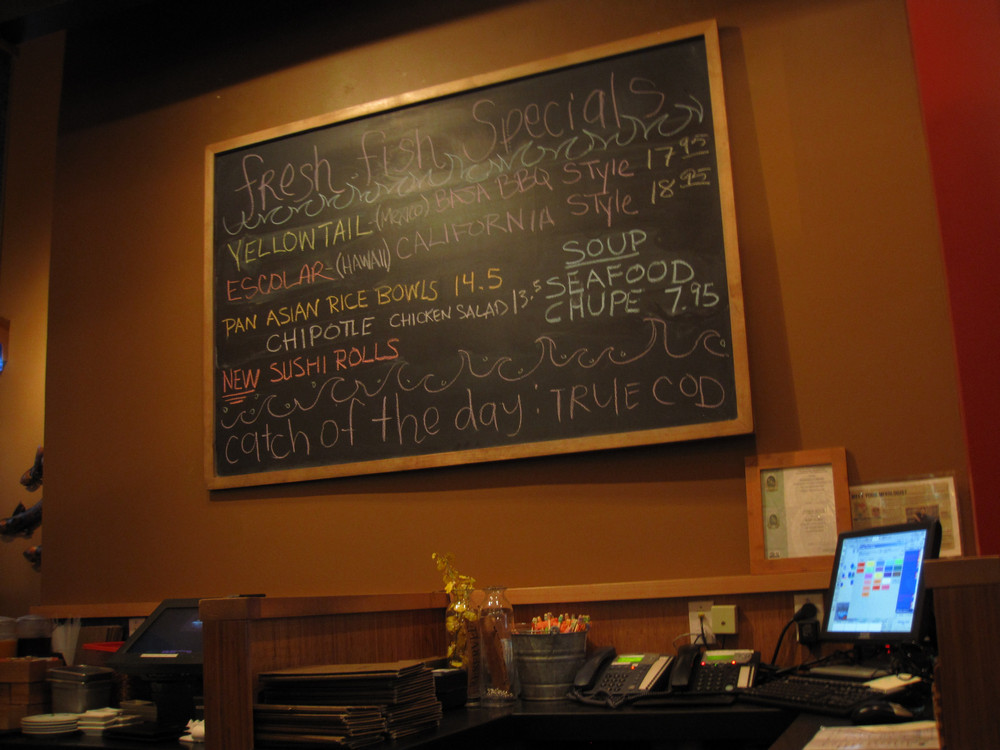 fresh fish Specials
YELLOWTAIL-(Mexico) BAJA BBQ Style 17 95
ESCOLAR-(HAWAII) CALIFORNIA Style 18 95
PAN ASIAN RICE BOWLS 14.5
CHIPOTLE CHICKEN SALAD 13.5
NEW SUSHI ROLLS
SOUP
SEAFOOD
CHUPE 7.95
catch of the day: TRUE COD